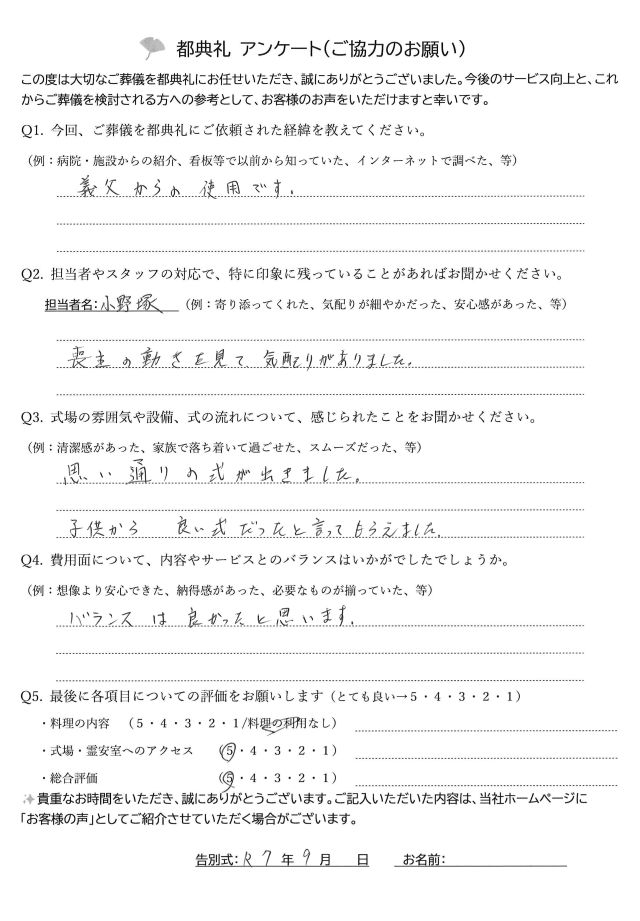 都典礼 アンケート(ご協力のお願い)
この度は大切なご葬儀を都典礼にお任せいただき、誠にありがとうございました。今後のサービス向上と、これ
からご葬儀を検討される方への参考として、お客様のお声をいただけますと幸いです。
Q1. 今回、ご葬儀を都典礼にご依頼された経緯を教えてください。
(例:病院・施設からの紹介、看板等で以前から知っていた、インターネットで調べた、等)
義父からの使用です。
Q2. 担当者やスタッフの対応で、特に印象に残っていることがあればお聞かせください。
担当者名:小野塚 (例:寄り添ってくれた、気配りが細やかだった、安心感があった、等)
喪主の動きを見て、気配りがありました。
Q3. 式場の雰囲気や設備、式の流れについて、感じられたことをお聞かせください。
(例:清潔感があった、家族で落ち着いて過ごせた、スムーズだった、等)
思い通りの式が出きました。
子供から 良い式だったと言ってもらえました。
Q4. 費用面について、内容やサービスとのバランスはいかがでしたでしょうか。
(例:想像より安心できた、納得感があった、必要なものが揃っていた、等)
バランスは良かったと思います。
Q5. 最後に各項目についての評価をお願いします(とても良い→5・4・3・2・1)
・料理の内容 (5・4・3・2・1/料理の利用なし)
・式場・霊安室へのアクセス (5・4・3・2・1)
・総合評価 (5・4・3・2・1)
✨貴重なお時間をいただき、誠にありがとうございます。ご記入いただいた内容は、当社ホームページに
「お客様の声」としてご紹介させていただく場合がございます。
告別式:R7年9月 日 お名前: